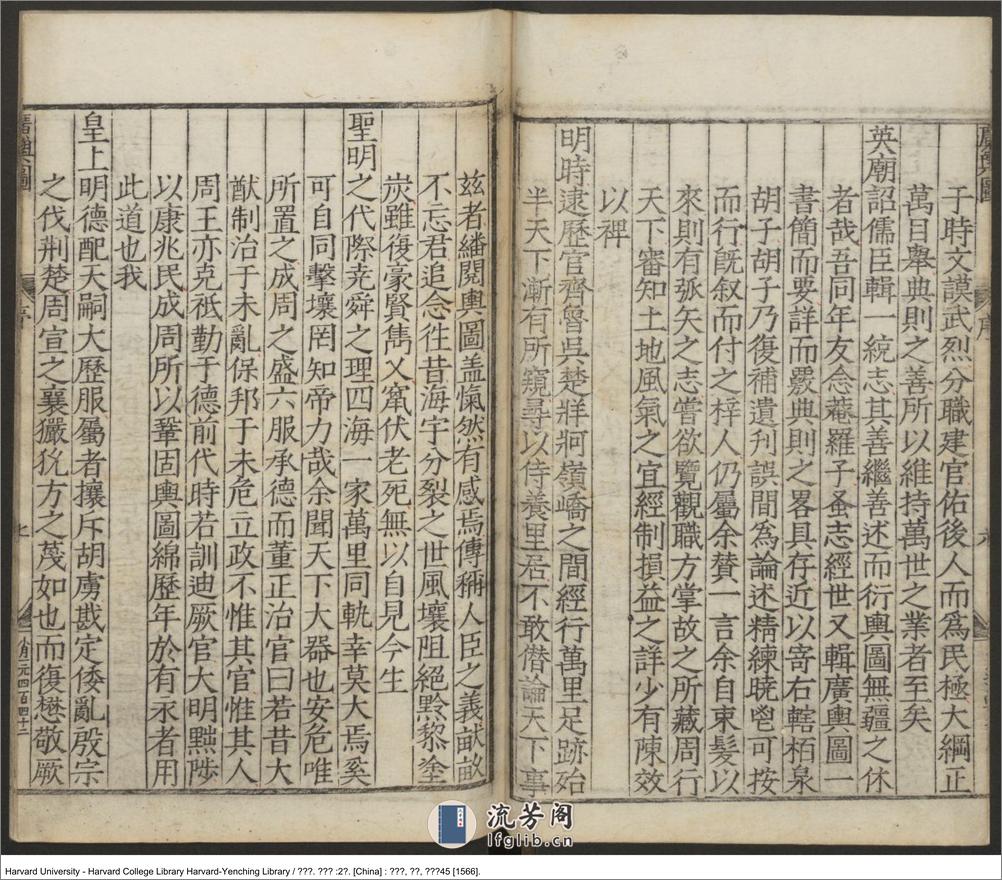 廣輿圖
序
于時文謨武烈分職建官佑後人而爲民極大綱正
萬目舉典則之善所以維持萬世之業者至矣
英廟詔儒臣輯一統志其善繼善述而衍輿圖無疆之休
者哉吾同年友念菴羅子蚤志經世又輯廣輿圖一
書簡而要詳而覈典則之畧具存近以寄右轄栢泉
胡子胡子乃復補遺刋誤間爲論述精練曉鬯可按
而行旣叙而付之梓人仍屬余贊一言余自束髮以
來則有弧矢之志嘗欲覽觀職方掌故之所藏周行
天下審知土地風氣之宜經制損益之詳少有陳效
以裨
明時逮歷官齊魯吳楚牂牁嶺嶠之間經行萬里足跡殆
半天下漸有所窺尋以侍養里居不敢僣論天下事
兹者繙閱輿圖盖愾然有感焉傳稱人臣之義畎畝
不忘君追念徃昔海宇分裂之世風壤阻絕黔黎塗
炭雖復豪賢雋乂竄伏老死無以自見今生
聖明之代際堯舜之理四海一家萬里同軌幸莫大焉奚
可自同擊壤罔知帝力哉余聞天下大器也安危唯
所置之成周之盛六服承德而董正治官曰若昔大
猷制治于未亂保邦于未危立政不惟其官惟其人
周王亦克祗勤于德前代時若訓迪厥官大明黜陟
以康兆民成周所以鞏固輿圖綿歷年於有永者用
此道也我
皇上明德配天嗣大歷服屬者攘斥胡虜戡定倭亂殷宗
之伐荆楚周宣之襄玁狁方之蔑如也而復懋敬厥
廣輿圖
序
上
元四百四十二
流芳阁
lfglib.cn
Harvard University - Harvard College Library Harvard-Yenching Library / ???. ??? :2?. [China] : ???, ??, ???45 [1566].